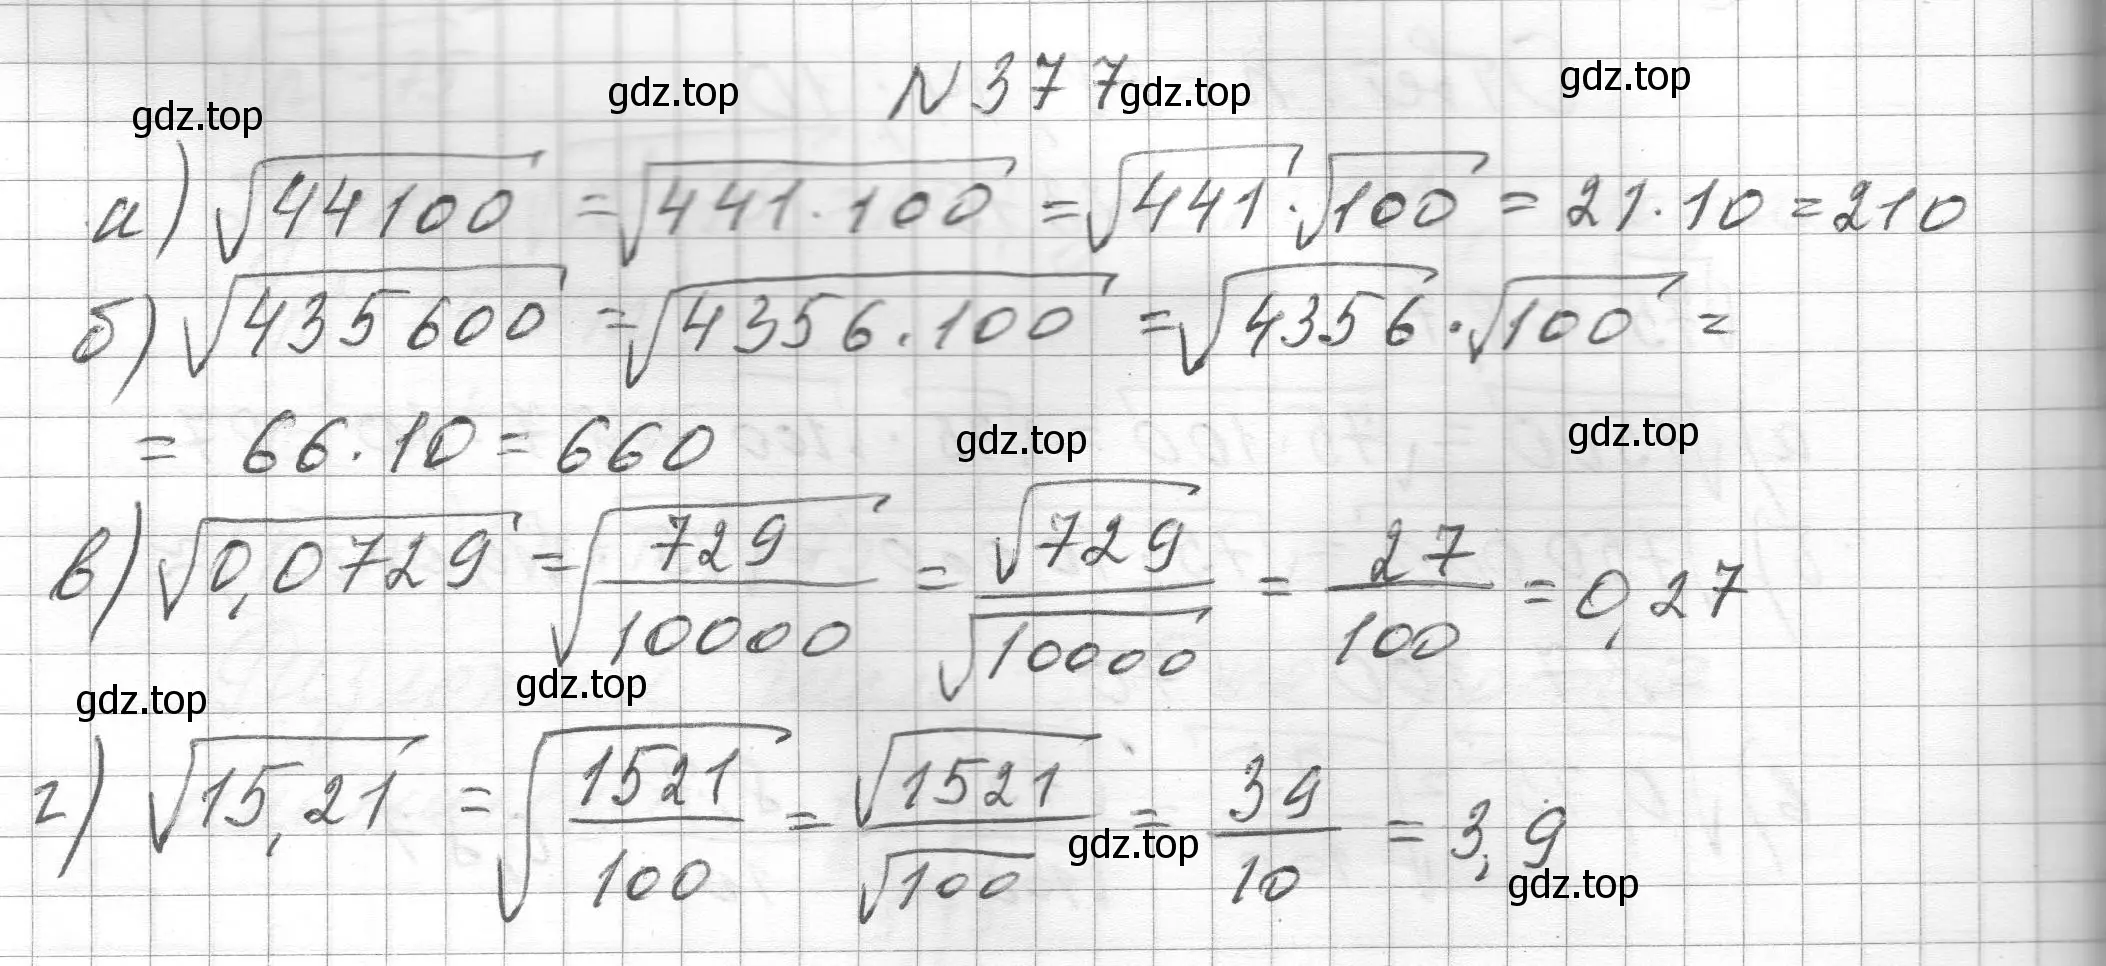 gdz.top gdz.top N 377 gdz.top gdz.top
а) √44100 = √441·100 = √441·√100 = 21·10 = 210
б) √435600 = √4356·100 = √4356·√100 =
= 66·10 = 660 gdz.top gdz.top
в) √0,0729 = √729/10000 = √729/√10000 = 27/100 = 0,27
gdz.top gdz.top
г) √15,21 = √1521/100 = √1521/√100 = 39/10 = 3,9
gdz.top gdz.top